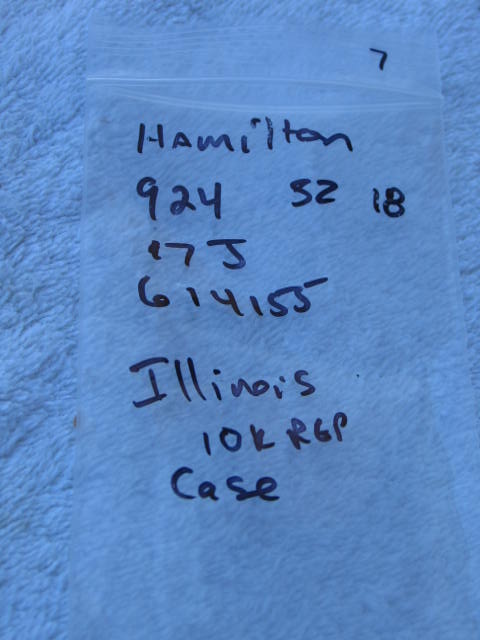 7
Hamilton
924 SZ 18
17 J
614155
Illinois
10K RGP
Case